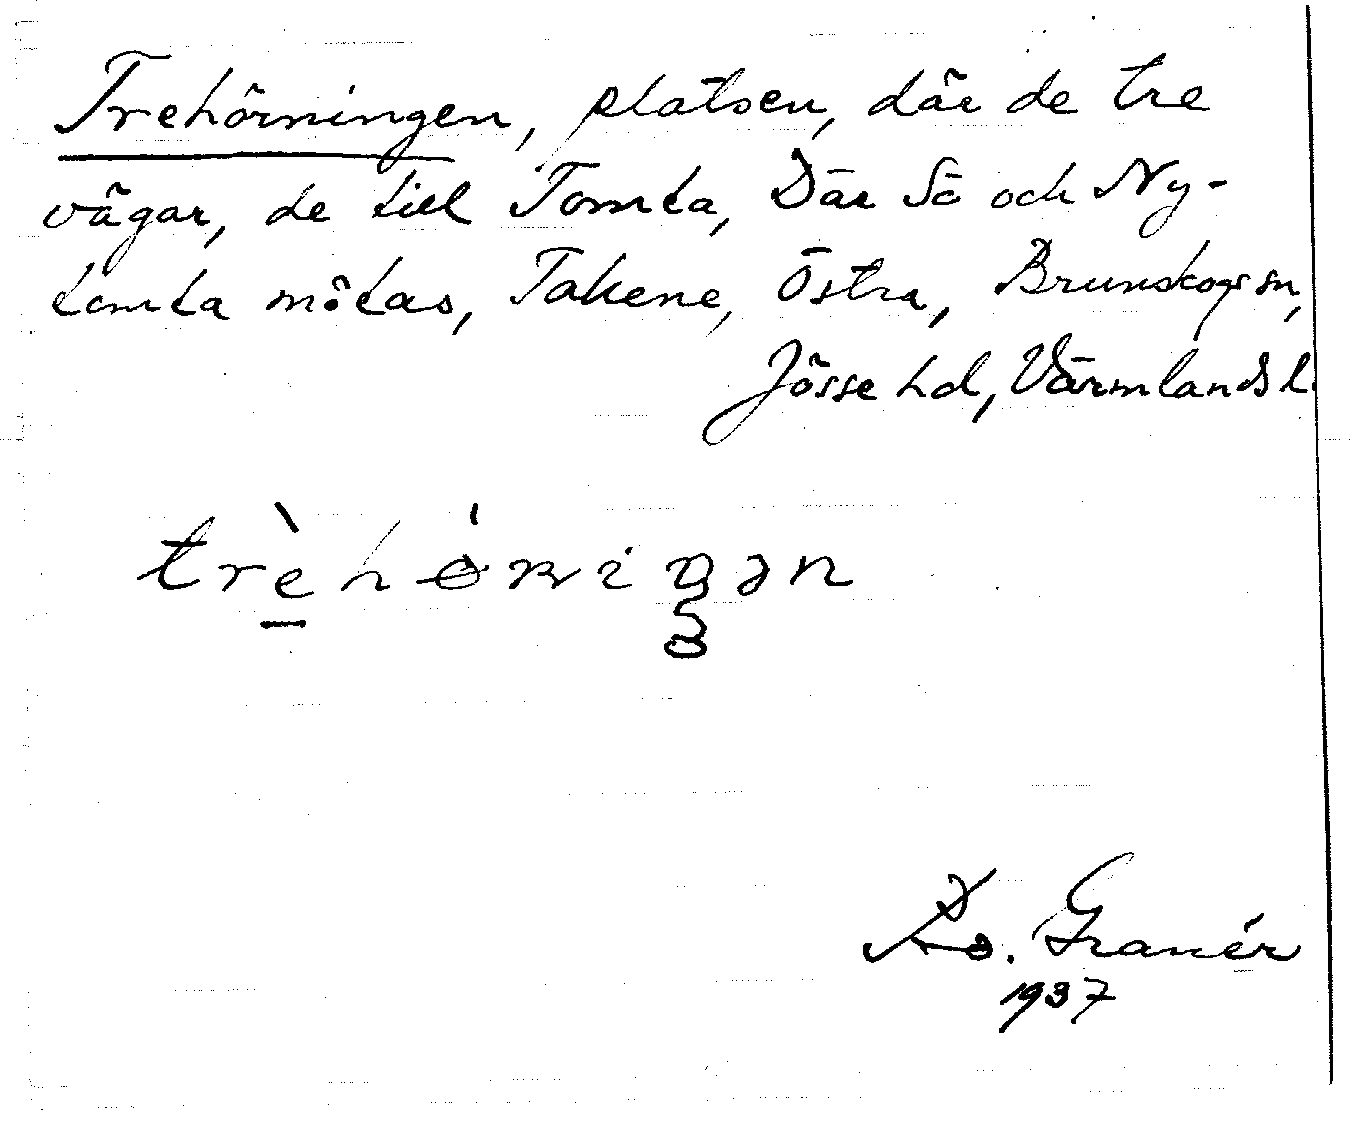 Trehörningen, platsen, där de tre
vägar, de till Tomta, Där Sö och Ny-
tomta mötas, Takene, Östra, Brunskogs sn,
Jösse hd, Värmlands l.
Granér
1937